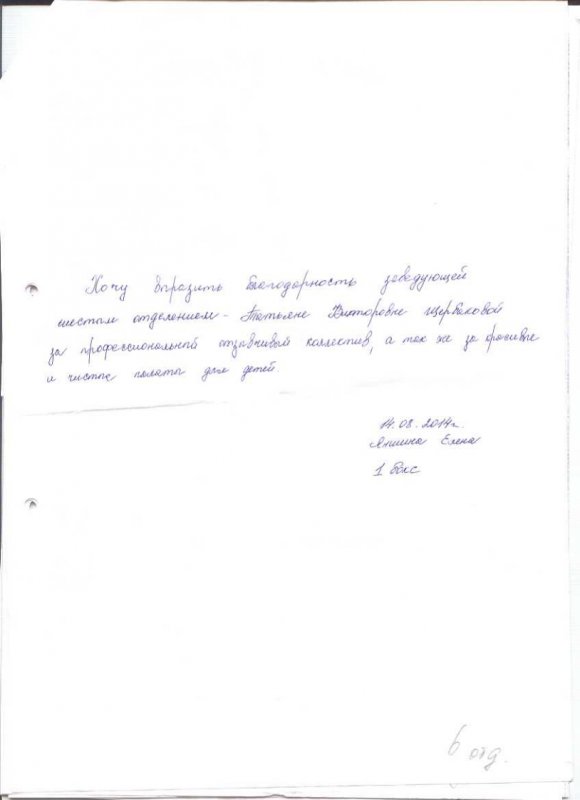 Хочу выразить благодарность заведующей
шестым отделением - Татьяне Викторовне Щербаковой
за профессиональный отзывчивый коллектив, а так же за красивые
и чистые палаты для детей.
14.08.2014г.
Яншина Елена
1 бокс
6 отд.